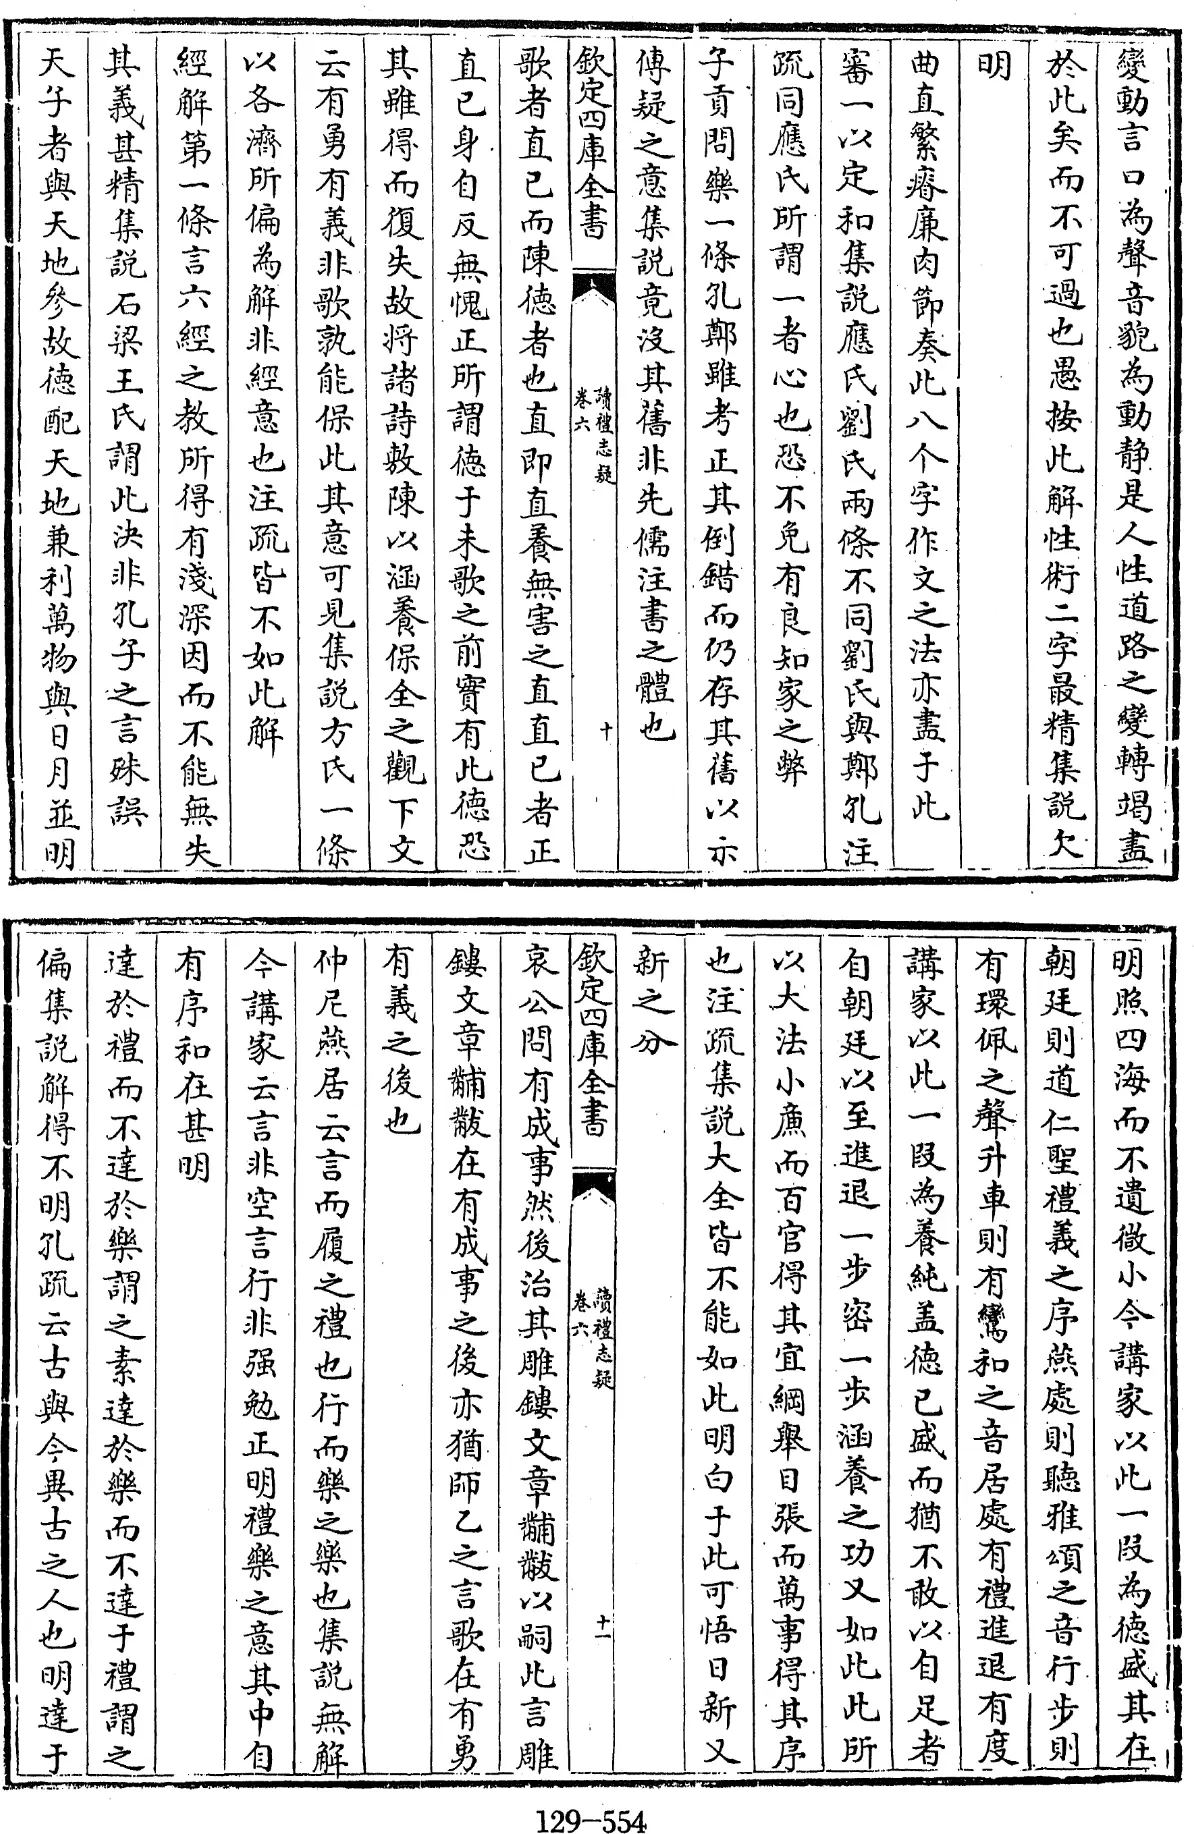 變動言口為聲音貌為動靜是人性道路之變轉竭盡
於此矣而不可過也愚按此解性術二字最精集説欠
明
曲直繁瘠廉肉節奏此八个字作文之法亦盡于此
審一以定和集説應氏劉氏兩條不同劉氏與鄭孔注
疏同應氏所謂一者心也恐不免有良知家之弊
子貢問樂一條孔鄭雖考正其倒錯而仍存其舊以示
傳疑之意集説竟没其舊非先儒注書之體也
欽定四庫全書
讀禮志疑
卷六
十
歌者直已而陳德者也直即直養無害之直直已者正
直已身自反無愧正所謂德于未歌之前實有此德恐
其雖得而復失故将諸詩敷陳以涵養保全之觀下文
云有勇有義非歌孰能保此其意可見集説方氏一條
以各濟所偏為解非經意也注疏皆不如此解
經解第一條言六經之教所得有淺深因而不能無失
其義甚精集説石梁王氏謂此決非孔子之言殊誤
天子者與天地參故德配天地兼利萬物與日月並明
明照四海而不遺微小今講家以此一段為德盛其在
朝廷則道仁聖禮義之序燕處則聽雅頌之音行步則
有環佩之聲升車則有鸞和之音居處有禮進退有度
講家以此一段為養純盖德已盛而猶不敢以自足者
自朝廷以至進退一步密一步涵養之功又如此此所
以大法小廉而百官得其宜綱舉目張而萬事得其序
也注疏集説大全皆不能如此明白于此可悟日新又
新之分
欽定四庫全書
讀禮志疑
卷六
十一
哀公問有成事然後治其雕鏤文章黼黻以嗣此言雕
鏤文章黼黻在有成事之後亦猶師乙之言歌在有勇
有義之後也
仲尼燕居云言而履之禮也行而樂之樂也集説無解
今講家云言非空言行非强勉正明禮樂之意其中自
有序和在甚明
達於禮而不達於樂謂之素達於樂而不達于禮謂之
偏集説解得不明孔疏云古與今異古之人也明達于
129-554